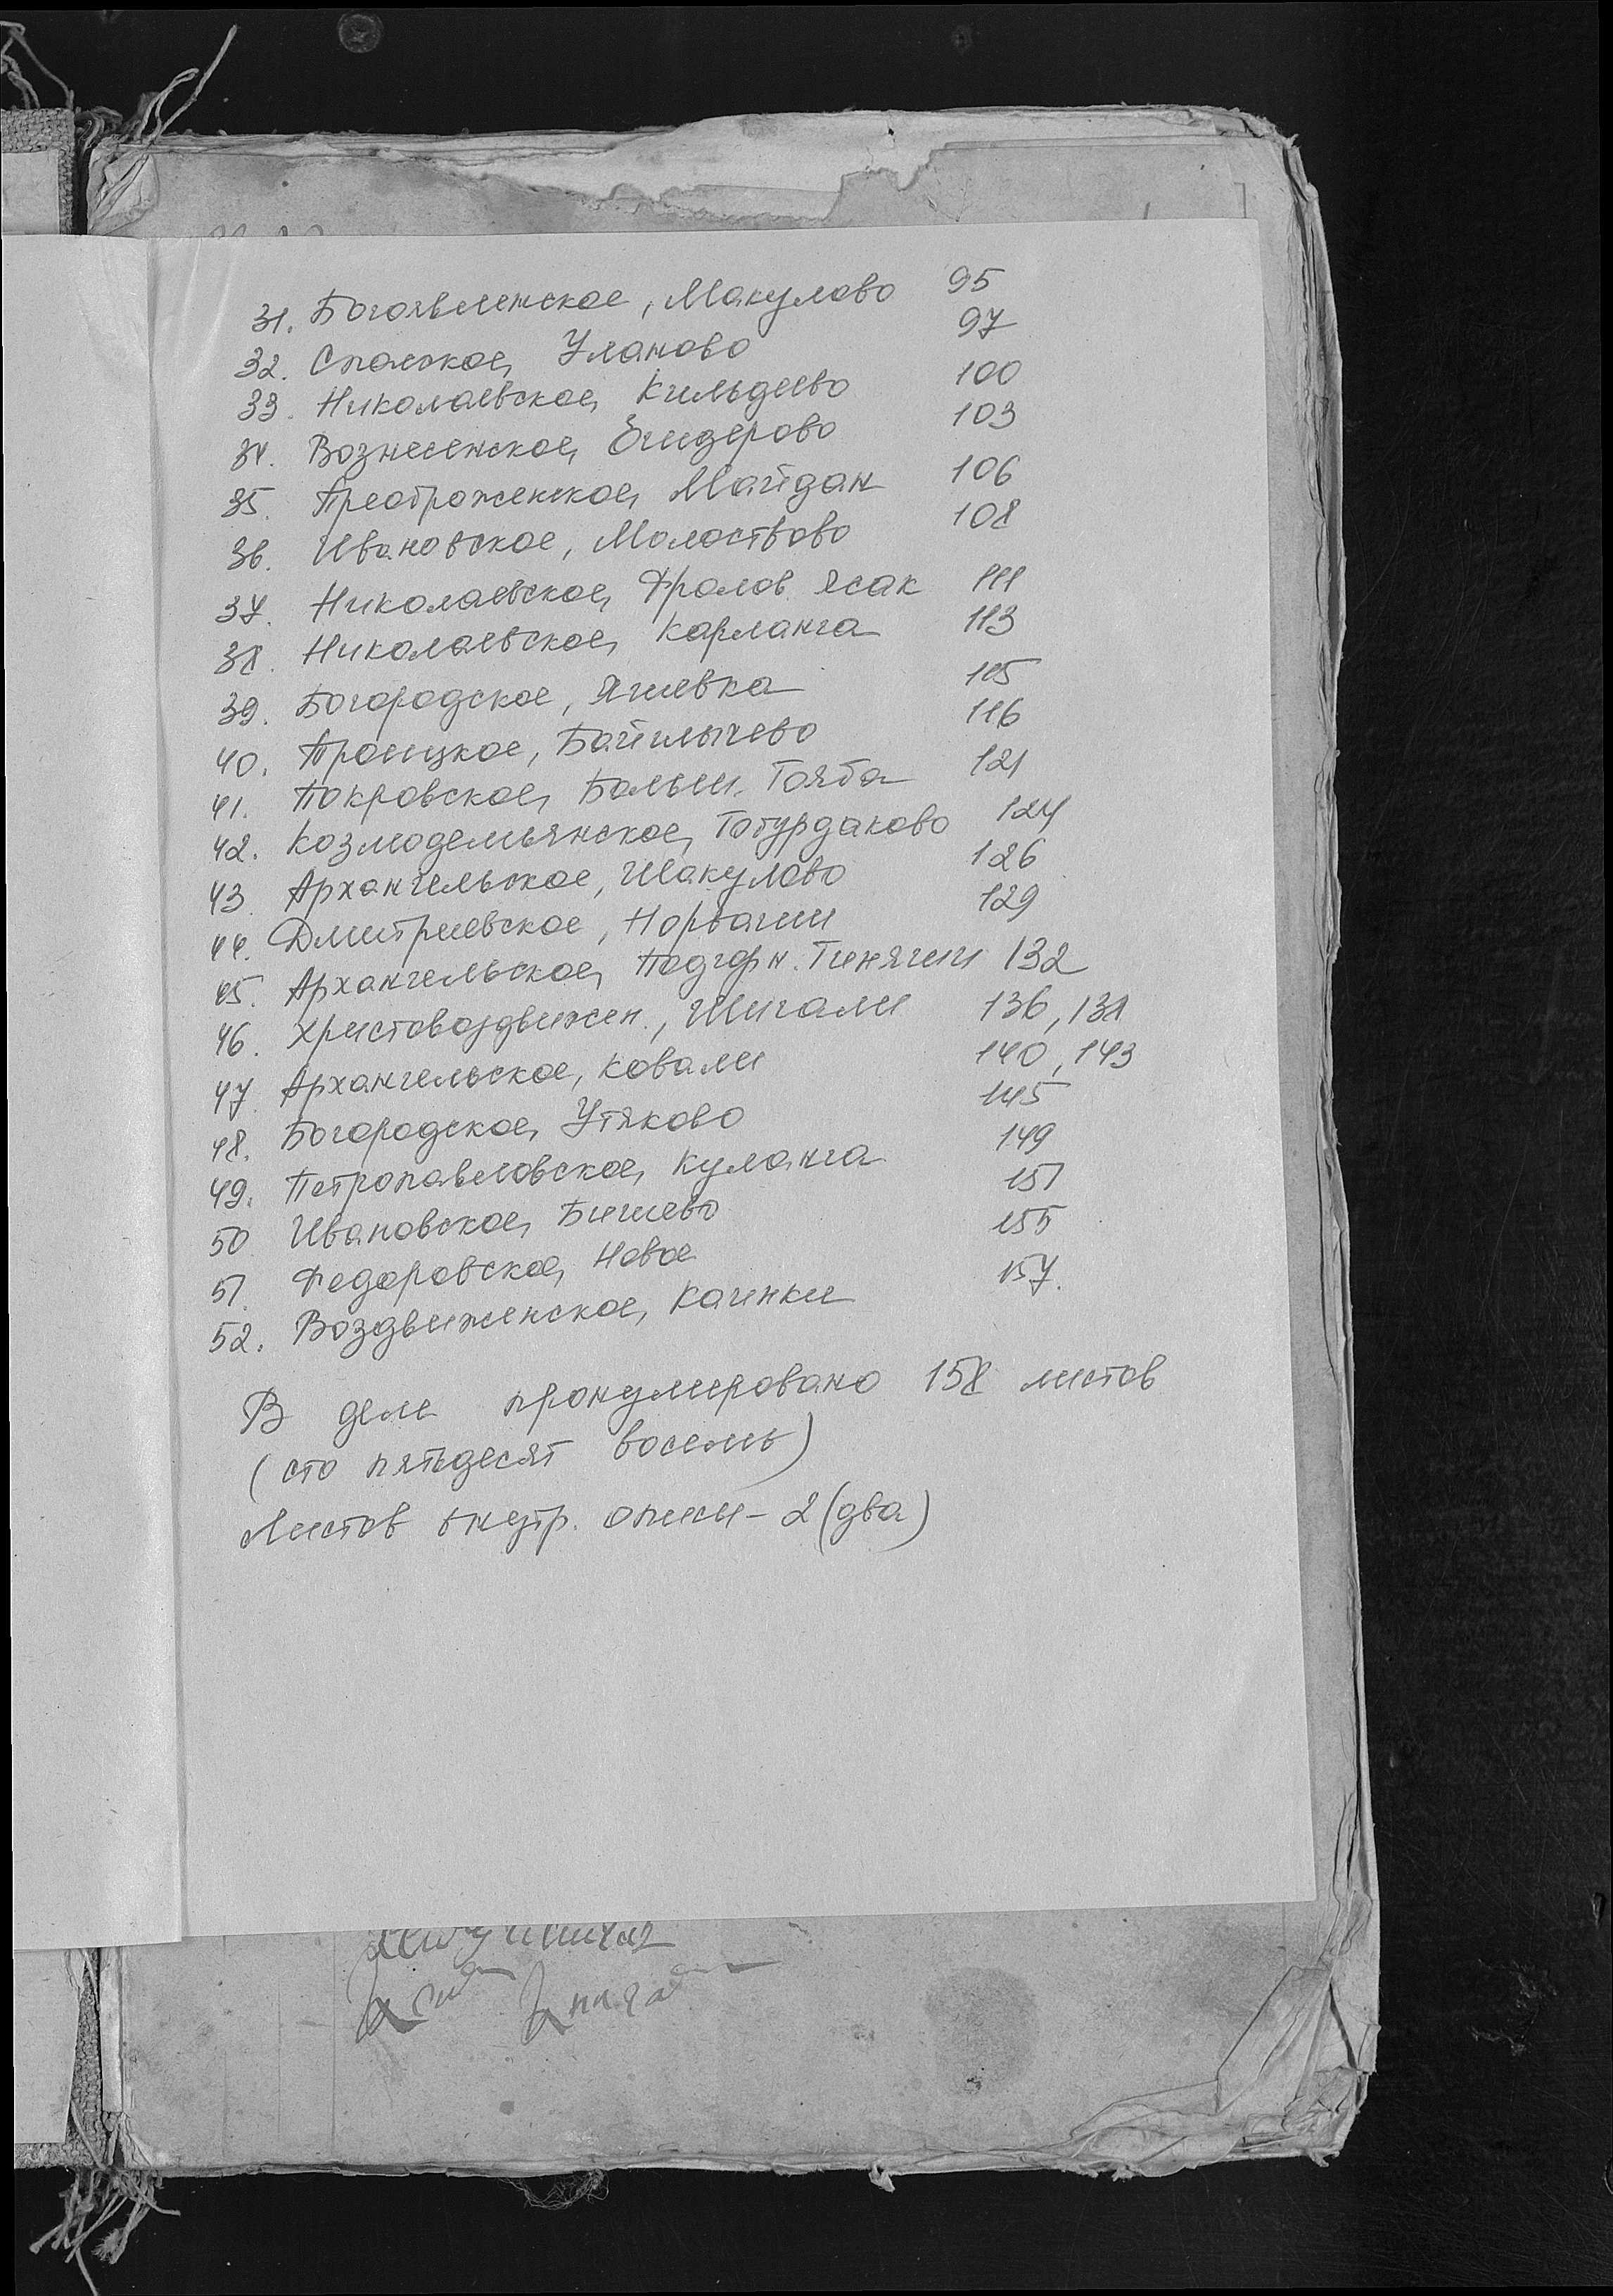 31. Богоявленское, Макулово 95
32. Спасское, Уланово 97
33. Николаевское, Кильдеево 100
34. Вознесенское, Егидерево 103
35. Преображенское, Майдан 106
36. Ивановское, Молоствово 108
37. Николаевское, Фролов. Ясак 111
38. Николаевское, Карланга 113
39. Богородское, Ягиевка 115
40. Троицкое, Байглычево 116
41. Покровское, Больш. Тояба 121
42. Козмодемьянское, Тобурданово 124
43. Архангельское, Шакулово 126
44. Дмитриевское, Норваши 129
45. Архангельское, Подгорн. Тимяши 132
46. Христовоздвижен., Шигали 136, 131
47. Архангельское, Ковали 140, 143
48. Богородское, Утяково 145
49. Петропавловское, Куланга 149
50 Ивановское, Бишево 151
51. Федоровское, Новое 155
52. Воздвиженское, Каинки 157.
В деле пронумеровано 158 листов
(сто пятьдесят восемь)
Листов внутр. описи - 2 (два)